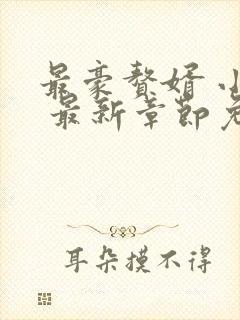 最豪赘婿小
最新章节免
耳朵摸不得